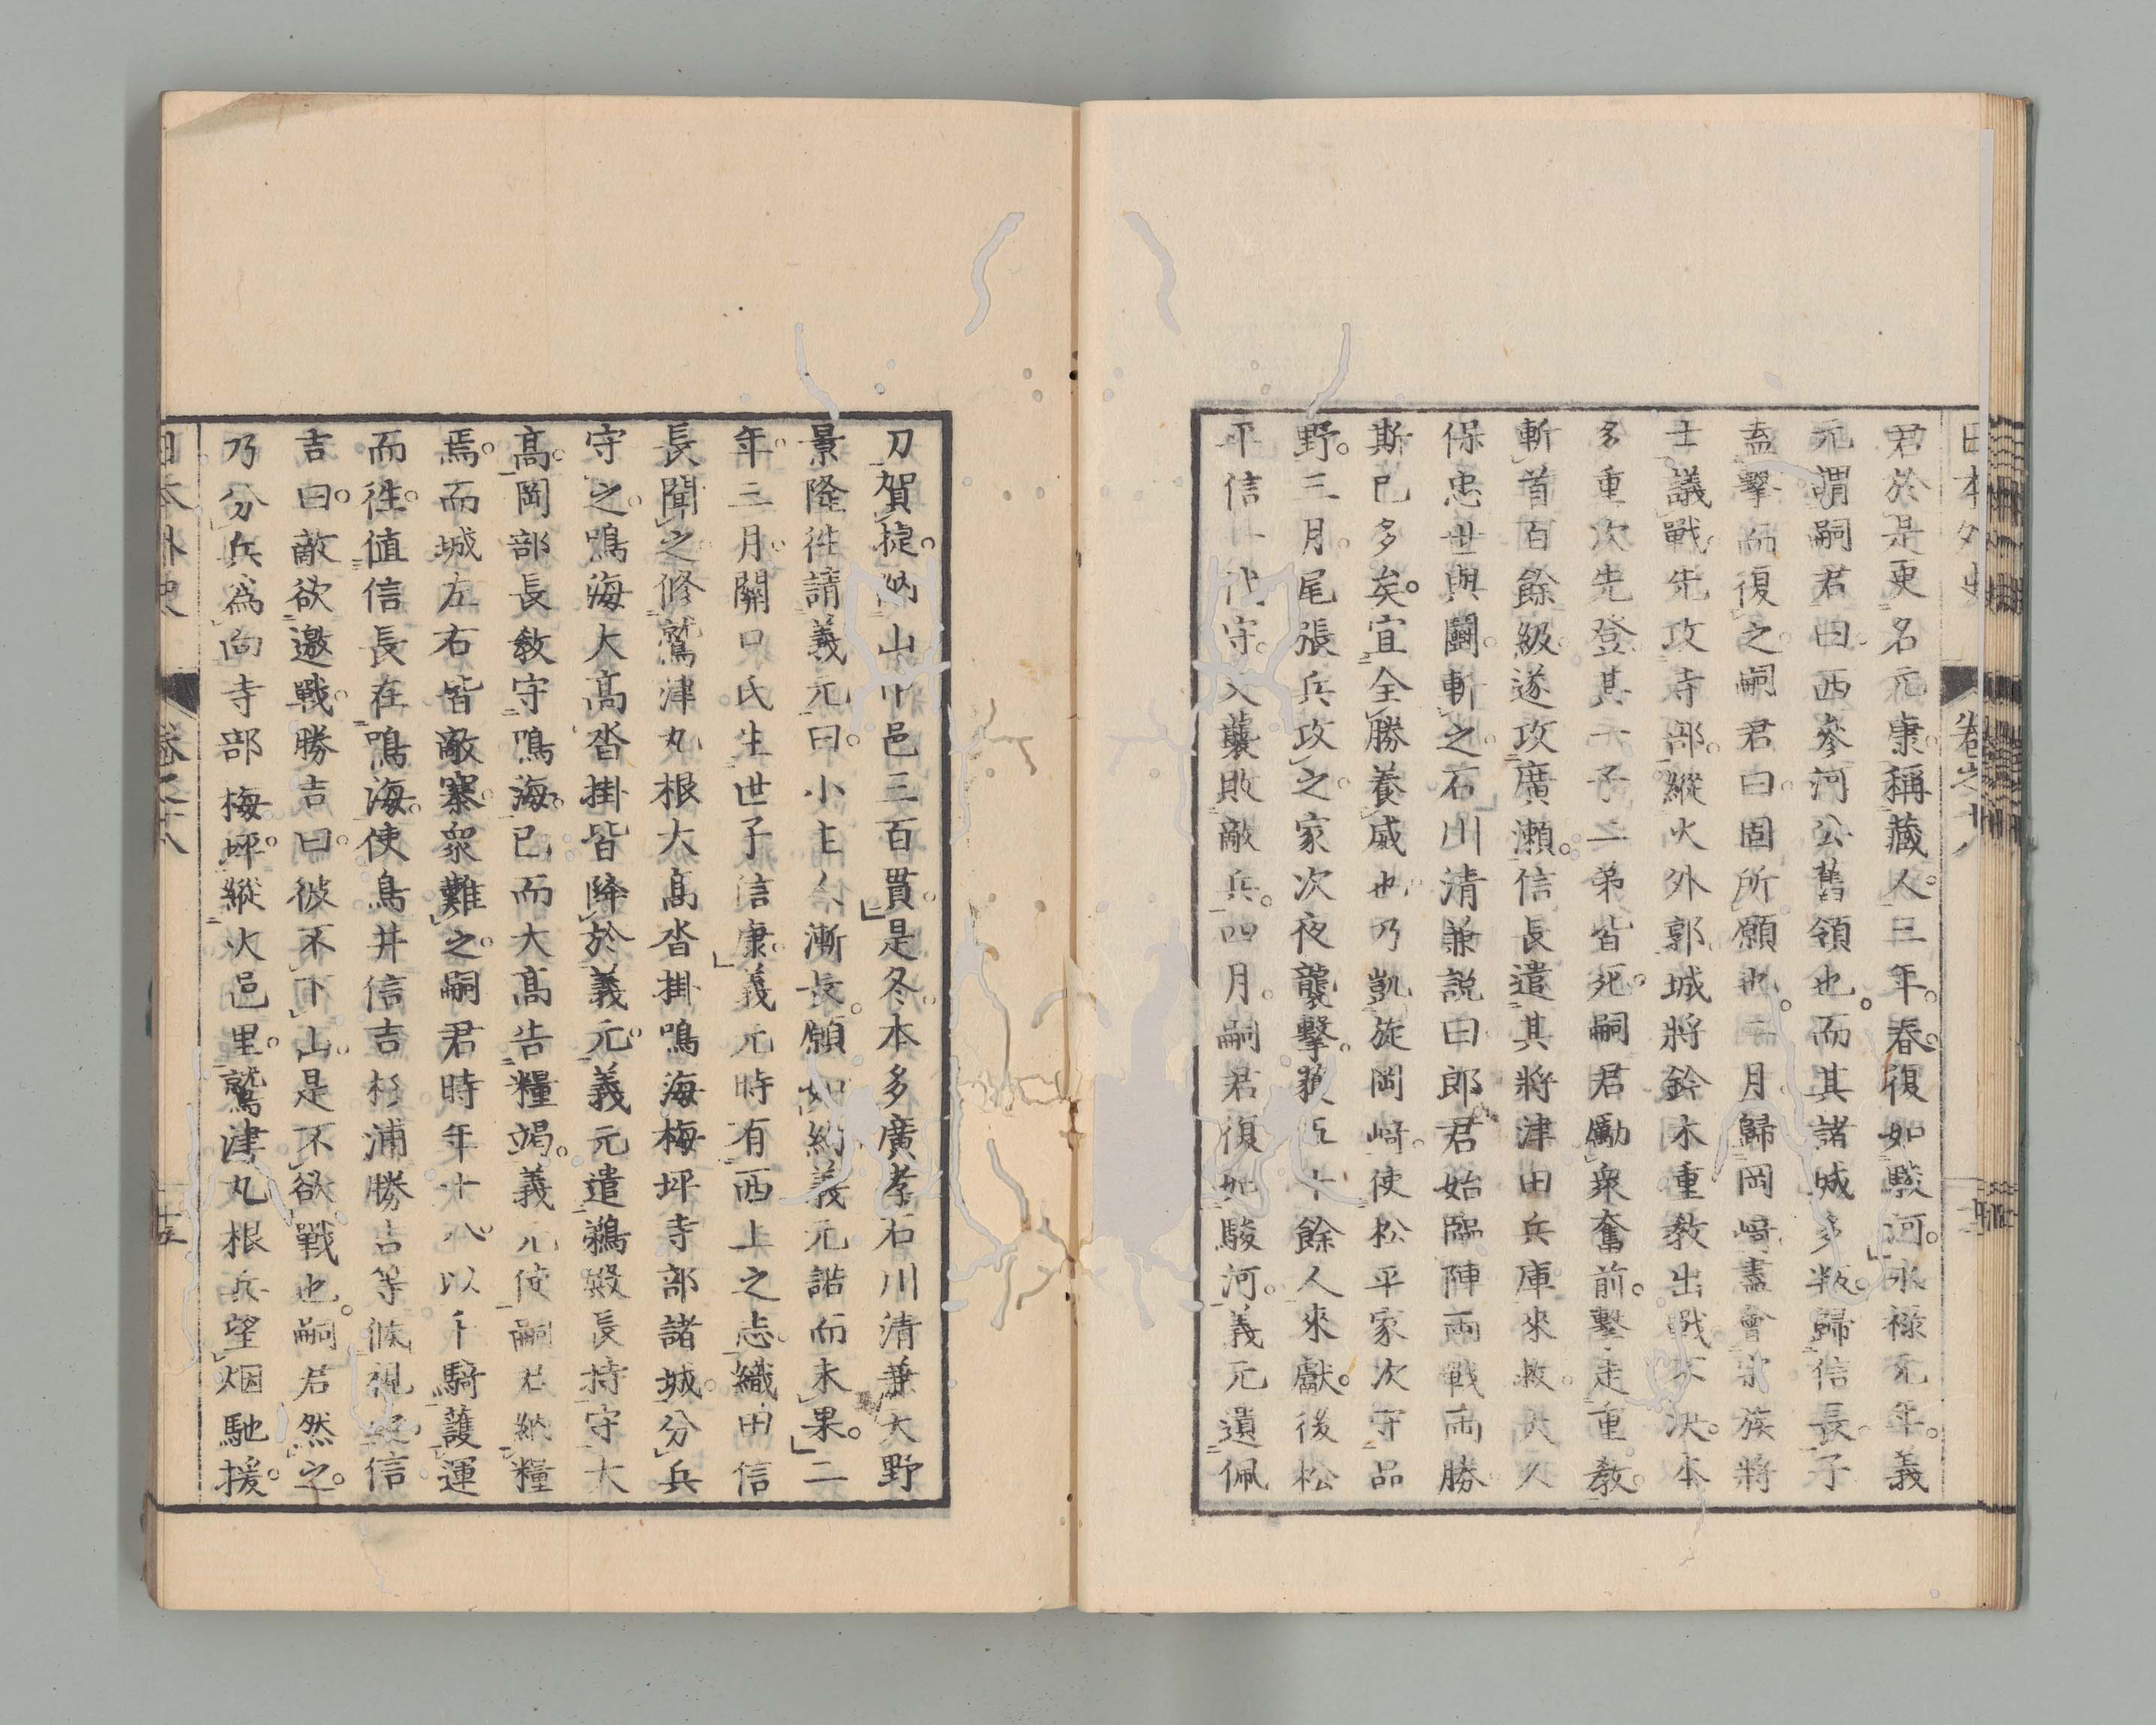 日本外史 卷之十八
君於是更名元康。稱藏人。三年。春。復如駿河。永祿元年。義
元謂嗣君曰。西參河公舊領也。而其諸城多叛。歸信長。子
盍擊而復之。嗣君曰。固所願也。二月。歸岡﨑。盡會宗族將
士議戰。先攻寺部。縱火外郭。城將鈴木重敎出戰。不決。本
多重次先登。其一子二弟皆死。嗣君勵衆奮前。擊走重敎。
斬首百餘級。遂攻廣瀨。信長遣其將津田兵庫來救。大久
保忠世與鬪。斬之。石川清兼說曰。郎君始臨陣。兩戰兩勝
斯已多矣。宜全勝養威也。乃凱旋岡﨑。使松平家次守品
野。三月。尾張兵攻之。家次夜襲擊。獲五十餘人來獻。後松
平信一代守。又襲敗敵兵。四月。嗣君復如駿河。義元遺佩
刀賀捷。納山中邑三百貫。是冬。本多廣孝石川清兼天野
景隆往請義元。曰。小主人漸長。願如約。義元諾而未果。二
年。三月。關口氏生世子信康。義元時有西上之志。織田信
長聞之。修鷲津丸根大高沓掛鳴海梅坪寺部諸城。分兵
守之。鳴海大高沓掛皆降於義元。義元遣鵜殿長持守大
高。岡部長敎守鳴海。已而大高告糧竭。義元使嗣君納糧
焉。而城左右皆敵寨。衆難之。嗣君時年十八。以千騎護運
而往。値信長在鳴海。使鳥井信吉杉浦勝吉等候視。信
吉曰。敵欲邀戰。勝吉曰。彼不下山。是不欲戰也。嗣君然之。
乃分兵爲向寺部梅坪。縱火邑里。鷲津丸根兵望烟馳援。
日本外史 卷之十八 十五